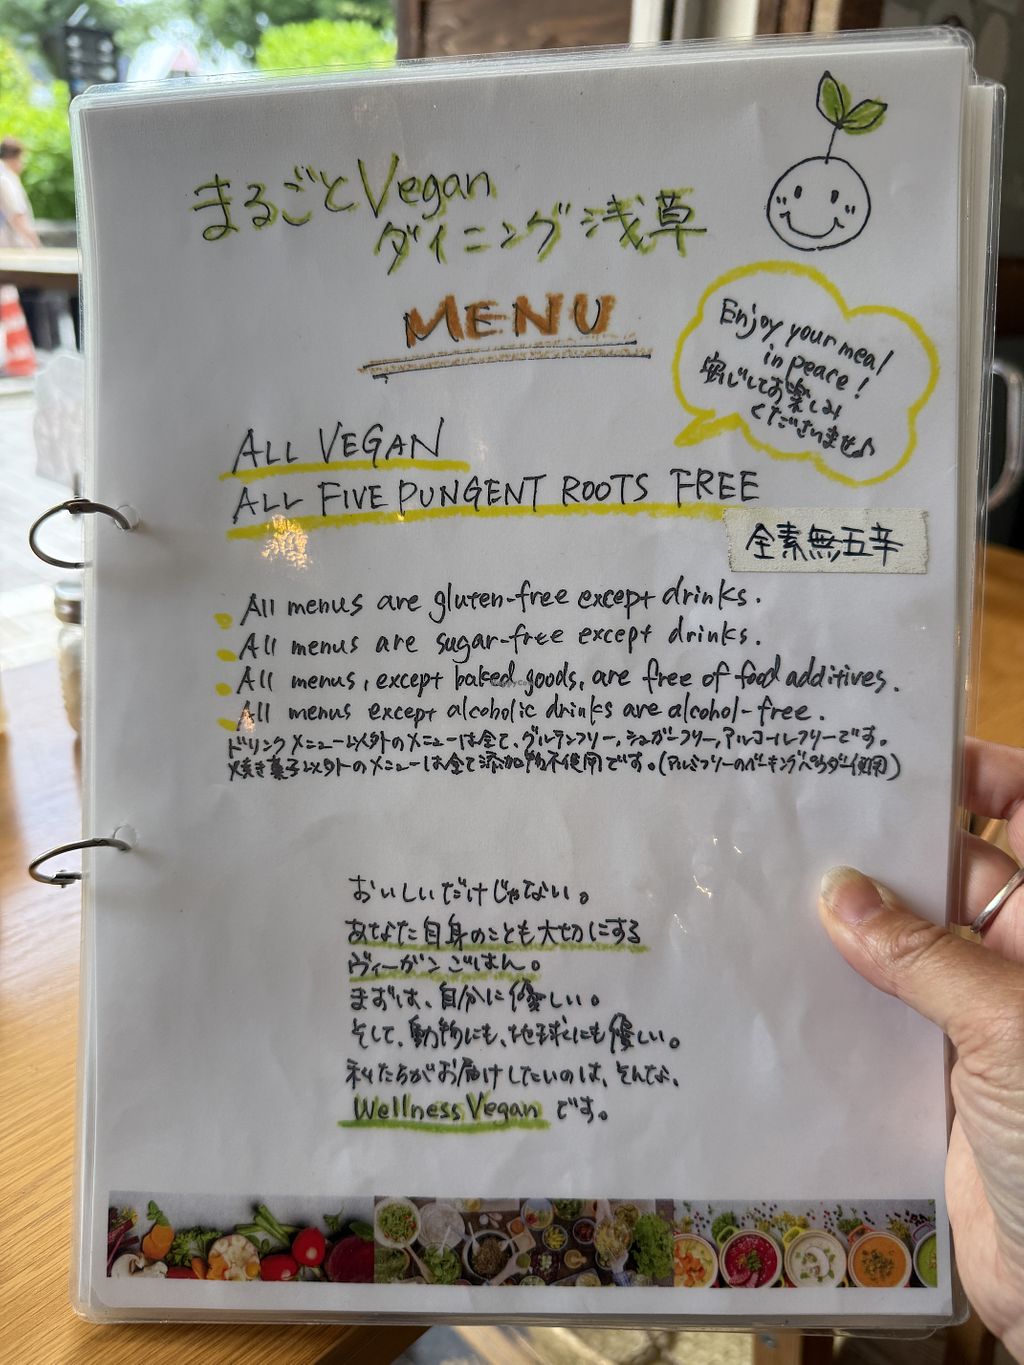 まるごとVegan
ダイニング浅草
MENU
Enjoy your meal
in peace!
安心してお楽しみ
くださいませ♪
ALL VEGAN
ALL FIVE PUNGENT ROOTS FREE
全素無五辛
All menus are gluten-free except drinks.
All menus are sugar-free except drinks.
All menus, except baked goods, are free of food additives.
All menus except alcoholic drinks are alcohol-free.
ドリンクメニュー以外のメニューは全て、グルテンフリー,シュガーフリー,アルコールフリーです。
焼き菓子以外のメニューは全て添加物不使用です。(アルミフリーのベーキングパウダー使用)
おいしいだけじゃない。
あなた自身のことも大切にする
ヴィーガンごはん。
まずは、自分に優しい。
そして、動物にも、地球にも優しい。
私たちがお届けしたいのは、そんな、
Wellness Vegan です。